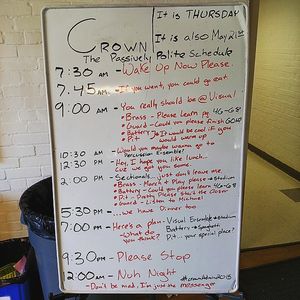 CROWN
The Passively Polite Schedule
It is THURSDAY
It is also May 21st
7:30 AM - Wake Up Now Please.
7:45 AM - If you want, you could go eat
9:00 AM - You really should be @ Visual
• Brass - Please learn pg. 4G-G8
• Guard - Could you please finish
• Battery - It would be cool if you
• Pit would warm up
10:30 AM - Would you maybe wanna go to Percussion Ensemble?
12:30 PM - Hey, I hope you like lunch...
Cuz we got you some.
2:00 PM - Sectionals... just don't leave me.
• Brass - March & Play please → stadium
• Battery - Could you please learn 4G-G8
• Pit - Pretty Please Start the Closer
• Guard - Listen to Michael
5:30 PM - ...we have Dinner too
7:00 PM - Here's a plan - Visual Ensemble → stadium
What do you think?
Battery →
Pit... your special place?
9:30 PM - Please Stop
2:00 AM - Nuh Night
- Don't be mad, I'm just the messenger